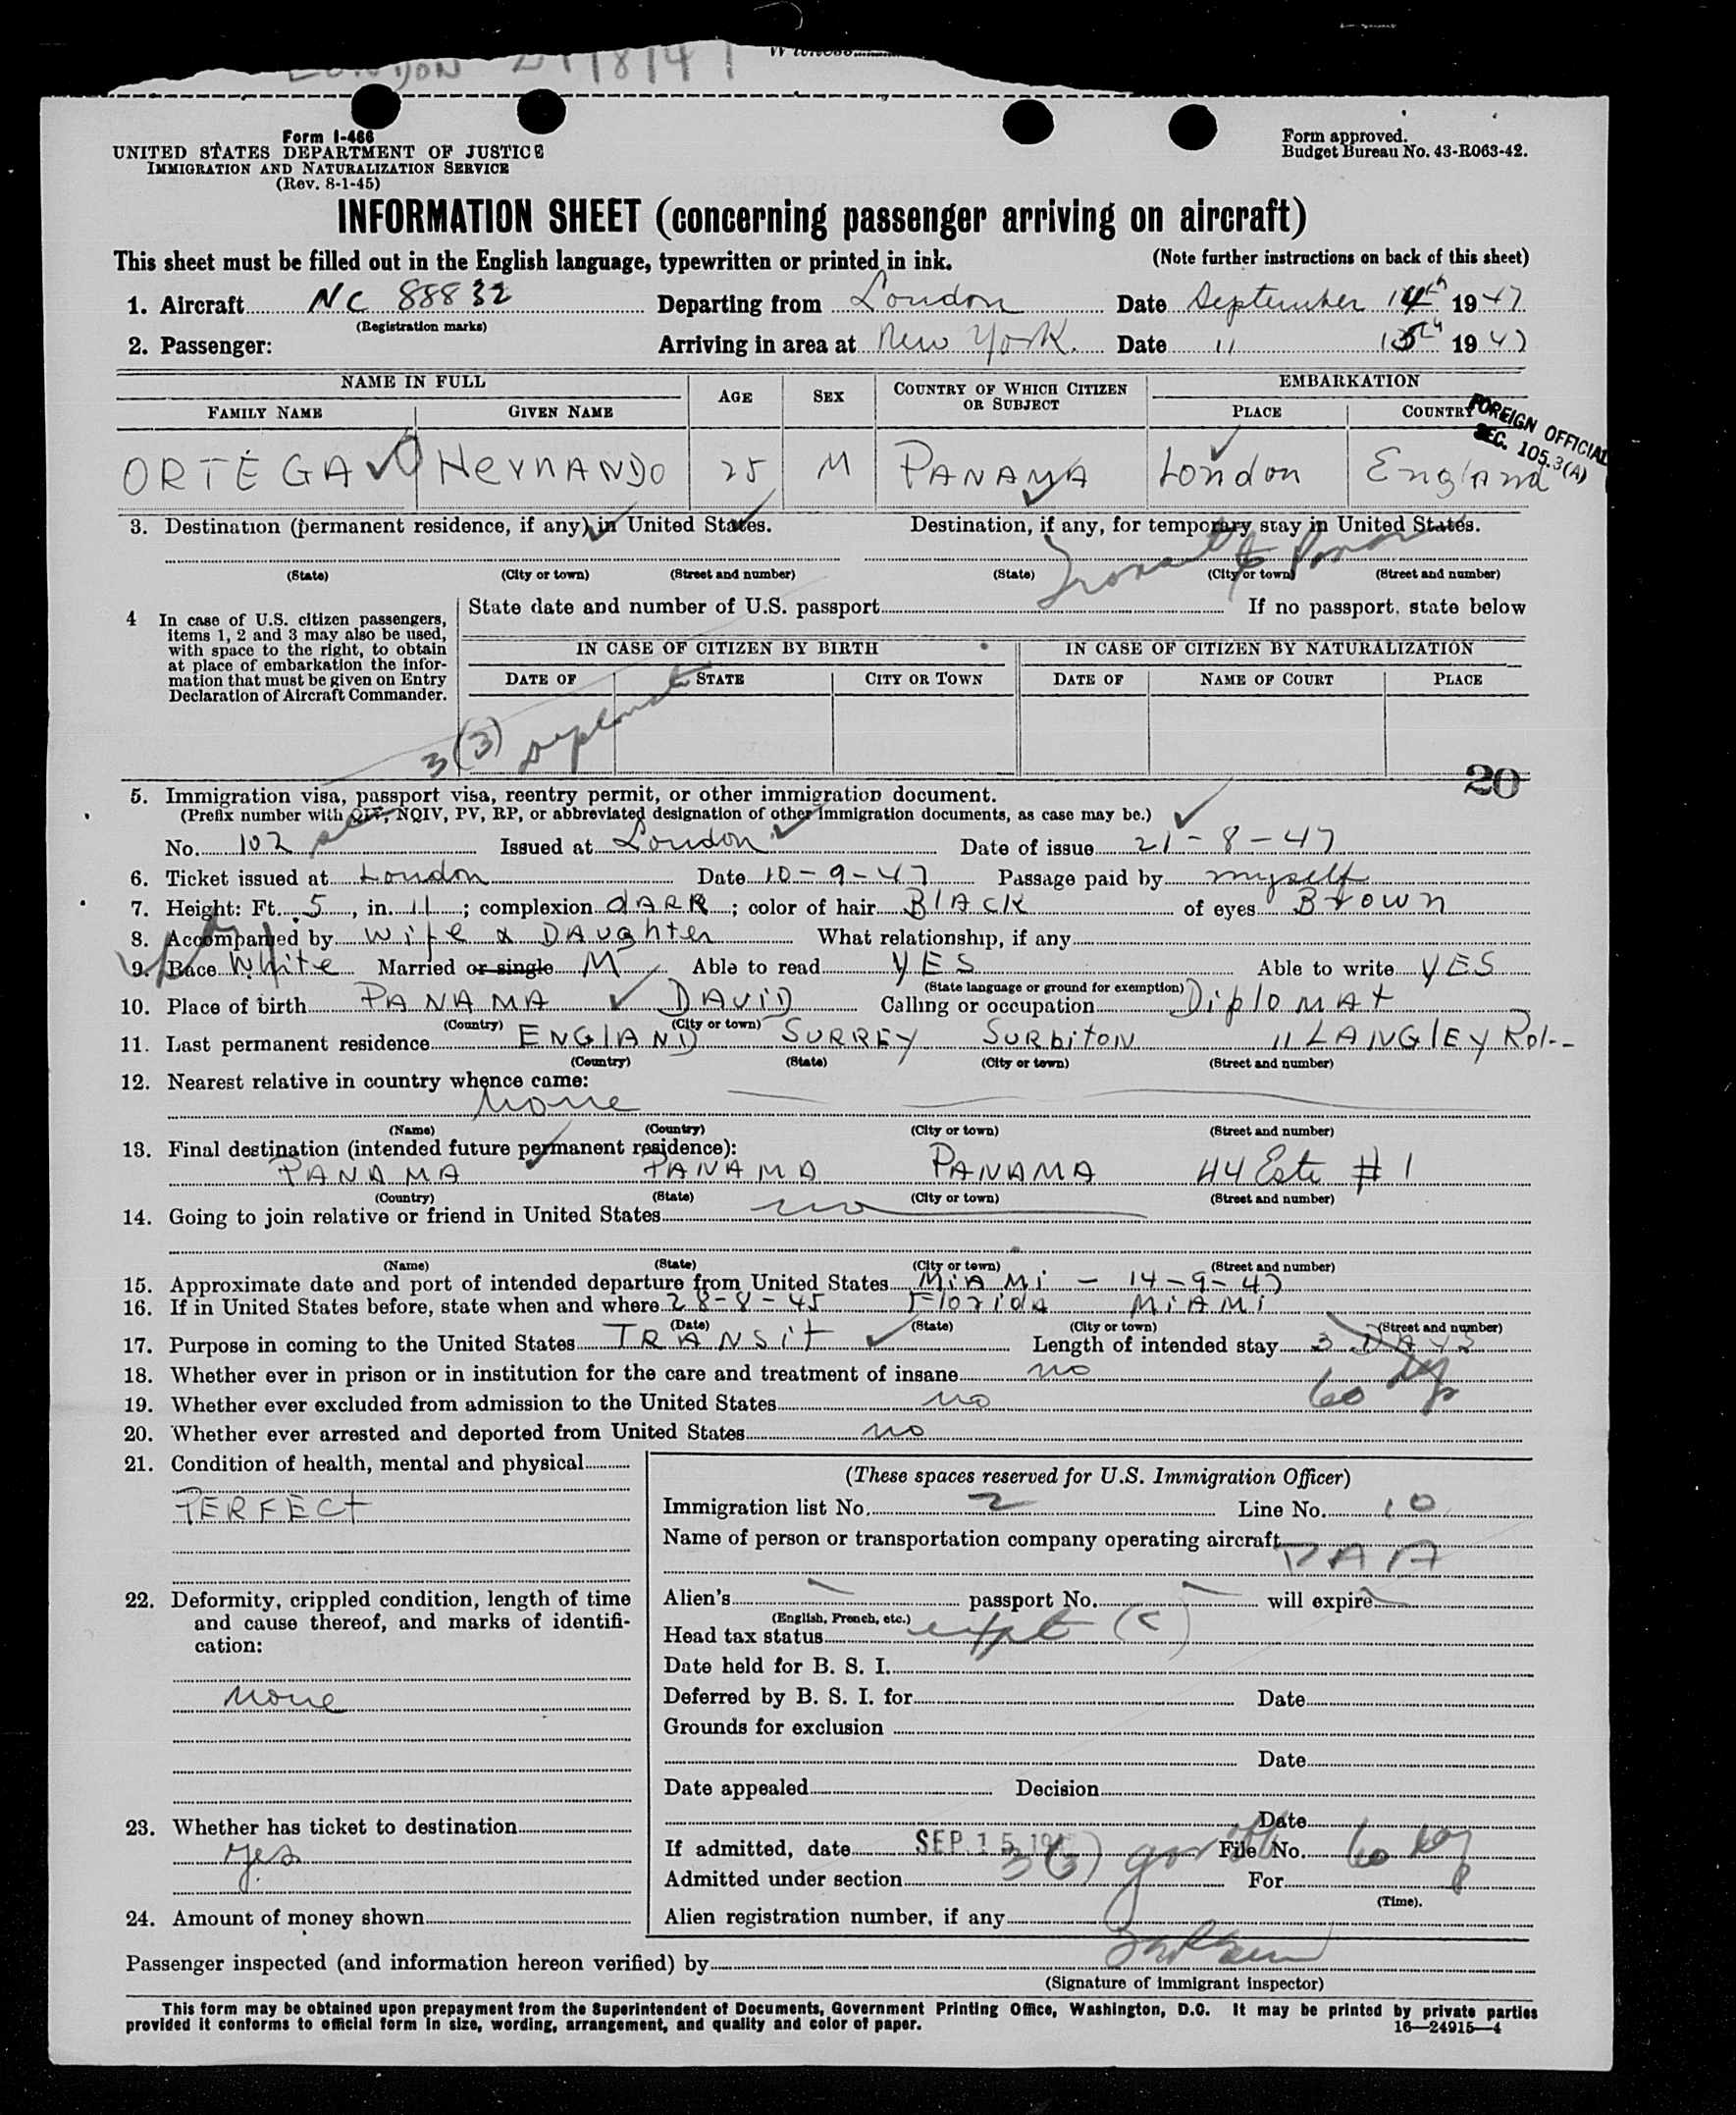 LONDON 21/8/47
Witness
Form I-466
UNITED STATES DEPARTMENT OF JUSTICE
IMMIGRATION AND NATURALIZATION SERVICE
(Rev. 8-1-45)
Form approved.
Budget Bureau No. 43-R063-42.
INFORMATION SHEET (concerning passenger arriving on aircraft)
This sheet must be filled out in the English language, typewritten or printed in ink. (Note further instructions on back of this sheet)
1. Aircraft NC 88832 Departing from London Date September 14th 1947
(Registration marks)
2. Passenger: Arriving in area at New York. Date " 15th 1947
NAME IN FULL AGE SEX COUNTRY OF WHICH CITIZEN OR SUBJECT EMBARKATION
FAMILY NAME GIVEN NAME PLACE COUNTRY
FOREIGN OFFICIAL
SEC. 105.3(A)
ORTEGA HernANDO 25 M PANAMA London EnglAnd
3. Destination (permanent residence, if any) in United States. Destination, if any, for temporary stay in United States.
(State) (City or town) (Street and number) (State) (City or town) (Street and number)
4 In case of U.S. citizen passengers, items 1, 2 and 3 may also be used, with space to the right, to obtain at place of embarkation the information that must be given on Entry Declaration of Aircraft Commander.
State date and number of U.S. passport If no passport, state below
IN CASE OF CITIZEN BY BIRTH IN CASE OF CITIZEN BY NATURALIZATION
DATE OF STATE CITY OR TOWN DATE OF NAME OF COURT PLACE
3(3) diplomat
20
5. Immigration visa, passport visa, reentry permit, or other immigration document.
(Prefix number with QIV, NQIV, PV, RP, or abbreviated designation of other immigration documents, as case may be.)
No. 102 Issued at London Date of issue 21-8-47
6. Ticket issued at London Date 10-9-47 Passage paid by myself
7. Height: Ft. 5, in. 11; complexion dARK; color of hair BlACK of eyes Brown
8. Accompanied by wife & DAughter What relationship, if any
9. Race White Married or single M Able to read YES Able to write YES
(State language or ground for exemption)
10. Place of birth PANAMA DAVID Calling or occupation DiplomAt
(Country) (City or town)
11. Last permanent residence ENGlAND SURREY SURbiTON 11 LANGlEY Rd.--
(Country) (State) (City or town) (Street and number)
12. Nearest relative in country whence came:
None
(Name) (Country) (City or town) (Street and number)
13. Final destination (intended future permanent residence):
PANAMA PANAMA PANAMA 44 Este #1
(Country) (State) (City or town) (Street and number)
14. Going to join relative or friend in United States no
(Name) (State) (City or town) (Street and number)
15. Approximate date and port of intended departure from United States MiAMi - 14-9-47
16. If in United States before, state when and where 28-8-45 Florida MiAMi
(Date) (State) (City or town) (Street and number)
17. Purpose in coming to the United States TRANSit Length of intended stay 3 DAYS
18. Whether ever in prison or in institution for the care and treatment of insane no
60 dys
19. Whether ever excluded from admission to the United States no
20. Whether ever arrested and deported from United States no
21. Condition of health, mental and physical
PERFECt
22. Deformity, crippled condition, length of time and cause thereof, and marks of identification:
none
23. Whether has ticket to destination
yes
24. Amount of money shown
(These spaces reserved for U.S. Immigration Officer)
Immigration list No. 2 Line No. 10
Name of person or transportation company operating aircraft
PAA
Alien's passport No. will expire
(English, French, etc.)
Head tax status
Date held for B. S. I.
Deferred by B. S. I. for Date
Grounds for exclusion
Date
Date appealed Decision
Date
If admitted, date SEP 15 1947 File No.
Admitted under section 3(3) For 60 dys
(Time).
Alien registration number, if any
Passenger inspected (and information hereon verified) by
(Signature of immigrant inspector)
This form may be obtained upon prepayment from the Superintendent of Documents, Government Printing Office, Washington, D.C. It may be printed by private parties
provided it conforms to official form in size, wording, arrangement, and quality and color of paper. 16—24915-4